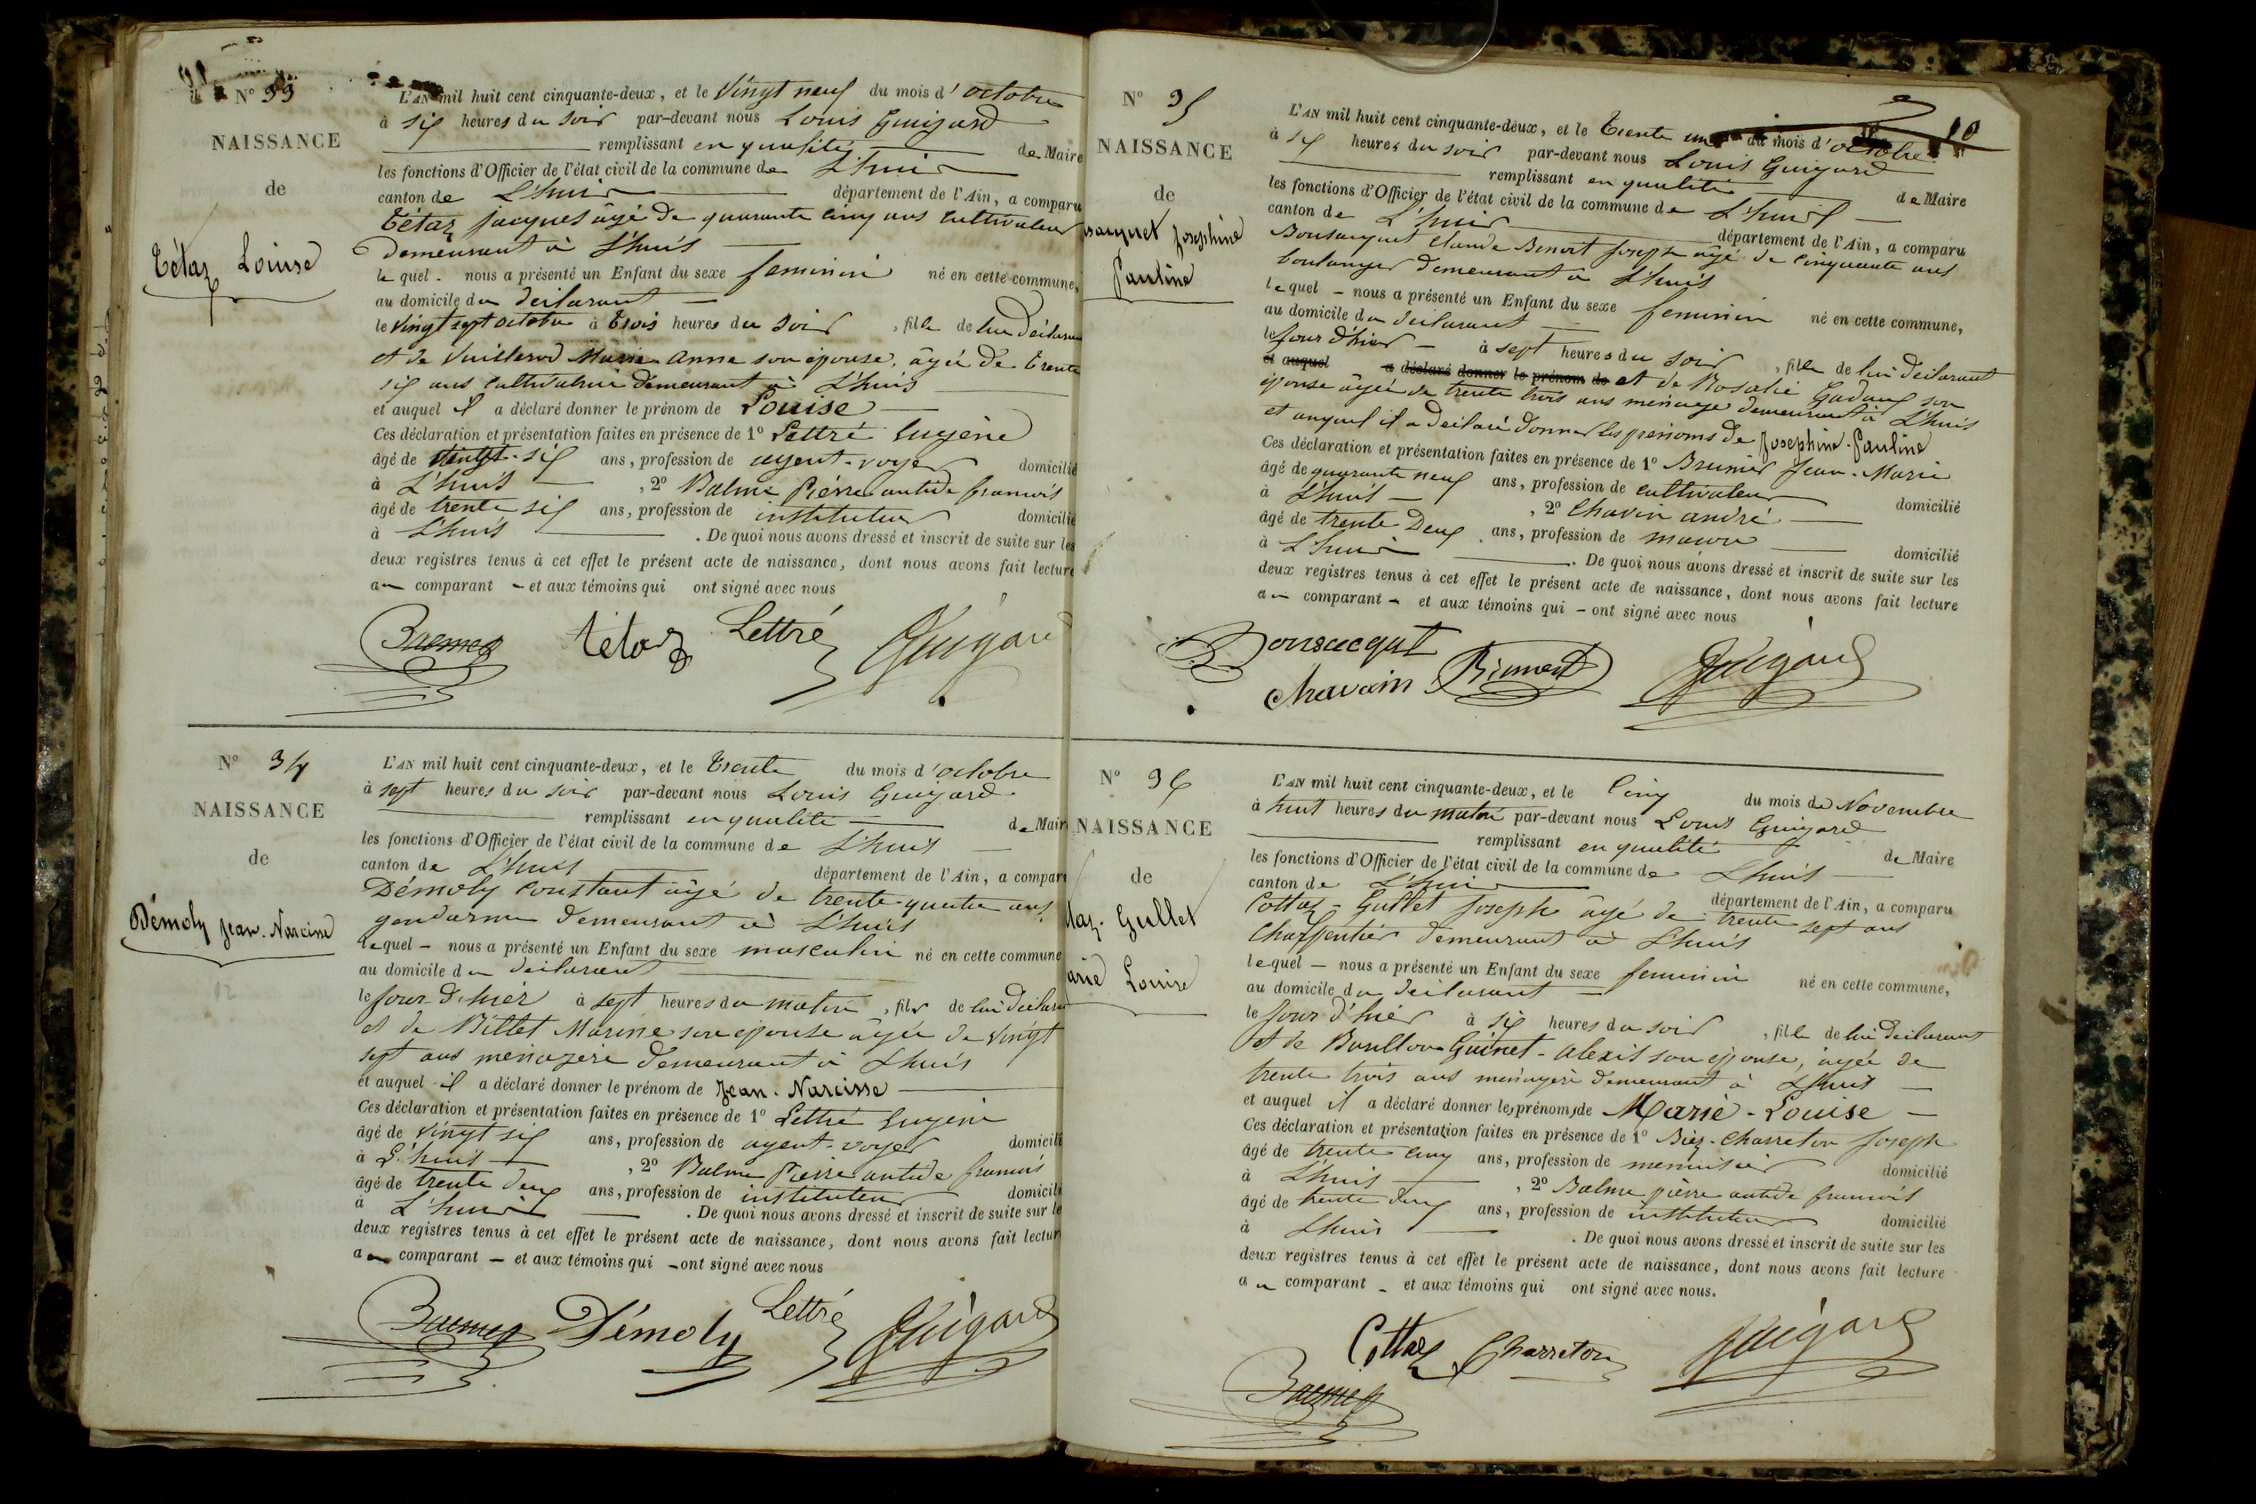 N° 33
NAISSANCE
de
Tétaz Louise
L'AN mil huit cent cinquante-deux, et le Vingt neuf du mois d'octobre
à six heures du soir par-devant nous Louis Guigard
remplissant en qualité de Maire
les fonctions d'Officier de l'état civil de la commune de L'huis
canton de L'huis département de l'Ain, a comparu
Tétaz Jacques âgé de quarante cinq ans cultivateur
demeurant à L'huis
lequel nous a présenté un Enfant du sexe feminin né en cette commune,
au domicile du déclarant
le vingt sept octobre à trois heures du soir, fille de lui déclarant
et de Vuillerod Marie Anne son épouse, âgée de trente
six ans cultivatrice demeurant à L'huis
et auquel il a déclaré donner le prénom de Louise
Ces déclaration et présentation faites en présence de 1° Lettré Eugène
âgé de vingt-six ans, profession de agent-voyer domicilié
à L'huis, 2° Balme Pierre antide françois
âgé de trente six ans, profession de instituteur domicilié
à L'huis. De quoi nous avons dressé et inscrit de suite sur les
deux registres tenus à cet effet le présent acte de naissance, dont nous avons fait lecture
au comparant et aux témoins qui ont signé avec nous
Tétaz Lettré Guigard
N° 34
NAISSANCE
de
Démoly Jean-Narcisse
L'AN mil huit cent cinquante-deux, et le Trente du mois d'octobre
à sept heures du soir par-devant nous Louis Guigard
remplissant en qualité de Maire
les fonctions d'Officier de l'état civil de la commune de L'huis
canton de L'huis département de l'Ain, a comparu
Démoly Constant âgé de trente-quatre ans
gendarme demeurant à L'huis
lequel nous a présenté un Enfant du sexe masculin né en cette commune
au domicile du déclarant
le jour d'hier à sept heures du matin, fils de lui déclarant
et de Billet Marine son épouse âgée de vingt
sept ans menagère demeurant à Lhuis
et auquel il a déclaré donner le prénom de Jean-Narcisse
Ces déclaration et présentation faites en présence de 1° Lettré Eugène
âgé de vingt six ans, profession de agent-voyer domicilié
à L'huis, 2° Balme Pierre antide françois
âgé de trente deux ans, profession de instituteur domicilié
à L'huis. De quoi nous avons dressé et inscrit de suite sur le
deux registres tenus à cet effet le présent acte de naissance, dont nous avons fait lectur
au comparant et aux témoins qui ont signé avec nous
Démoly Lettré Guigard
N° 35
NAISSANCE
de
sacquet Josephine
Pauline
L'AN mil huit cent cinquante-deux, et le Trente un du mois d'octobre
à six heures du soir par-devant nous Louis Guigard
remplissant en qualité de Maire
les fonctions d'Officier de l'état civil de la commune de L'huis
canton de L'huis département de l'Ain, a comparu
Bonsacquet Claude Benoit Joseph âgé de cinquante ans
boulanger demeurant à L'huis
lequel nous a présenté un Enfant du sexe feminin né en cette commune,
au domicile du déclarant
le jour d'hier à sept heures du soir, fille de lui déclarant
et auquel a déclaré donner le prénom de et de Rosalie son
épouse âgée de trente trois ans menage demeurant à L'huis
et auquel il a déclaré donner les prenoms de Josephine-Pauline
Ces déclaration et présentation faites en présence de 1° Brunier Jean-Marie
âgé de quarante neuf ans, profession de cultivateur domicilié
à L'huis, 2° Chavin andré
âgé de trente Deux ans, profession de maçon domicilié
à L'huis. De quoi nous avons dressé et inscrit de suite sur les
deux registres tenus à cet effet le présent acte de naissance, dont nous avons fait lecture
au comparant et aux témoins qui ont signé avec nous
Bonsacquet
Chavain Guigard
N° 36
NAISSANCE
de
taz-Gullet
arie Louise
L'AN mil huit cent cinquante-deux, et le Cinq du mois de Novembre
à huit heures du matin par-devant nous Louis Guigard
remplissant en qualité de Maire
les fonctions d'Officier de l'état civil de la commune de Lhuis
canton de Lhuis département de l'Ain, a comparu
Cottaz-Gullet Joseph âgé de trente sept ans
Charpentier demeurant à L'huis
lequel nous a présenté un Enfant du sexe feminin né en cette commune,
au domicile du déclarant
le jour d'hier à six heures du soir, fille de lui déclarant
et de Guinet-Alexis son épouse, âgée de
trente trois ans menagère demeurant à Lhuis
et auquel il a déclaré donner les prénoms de Marie-Louise
Ces déclaration et présentation faites en présence de 1° Biez-Charreton Joseph
âgé de trente cinq ans, profession de menuisier domicilié
à L'huis, 2° Balme pierre antide françois
âgé de trente deux ans, profession de instituteur domicilié
à Lhuis. De quoi nous avons dressé et inscrit de suite sur les
deux registres tenus à cet effet le présent acte de naissance, dont nous avons fait lecture
au comparant et aux témoins qui ont signé avec nous.
Cottaz Charreton Guigard